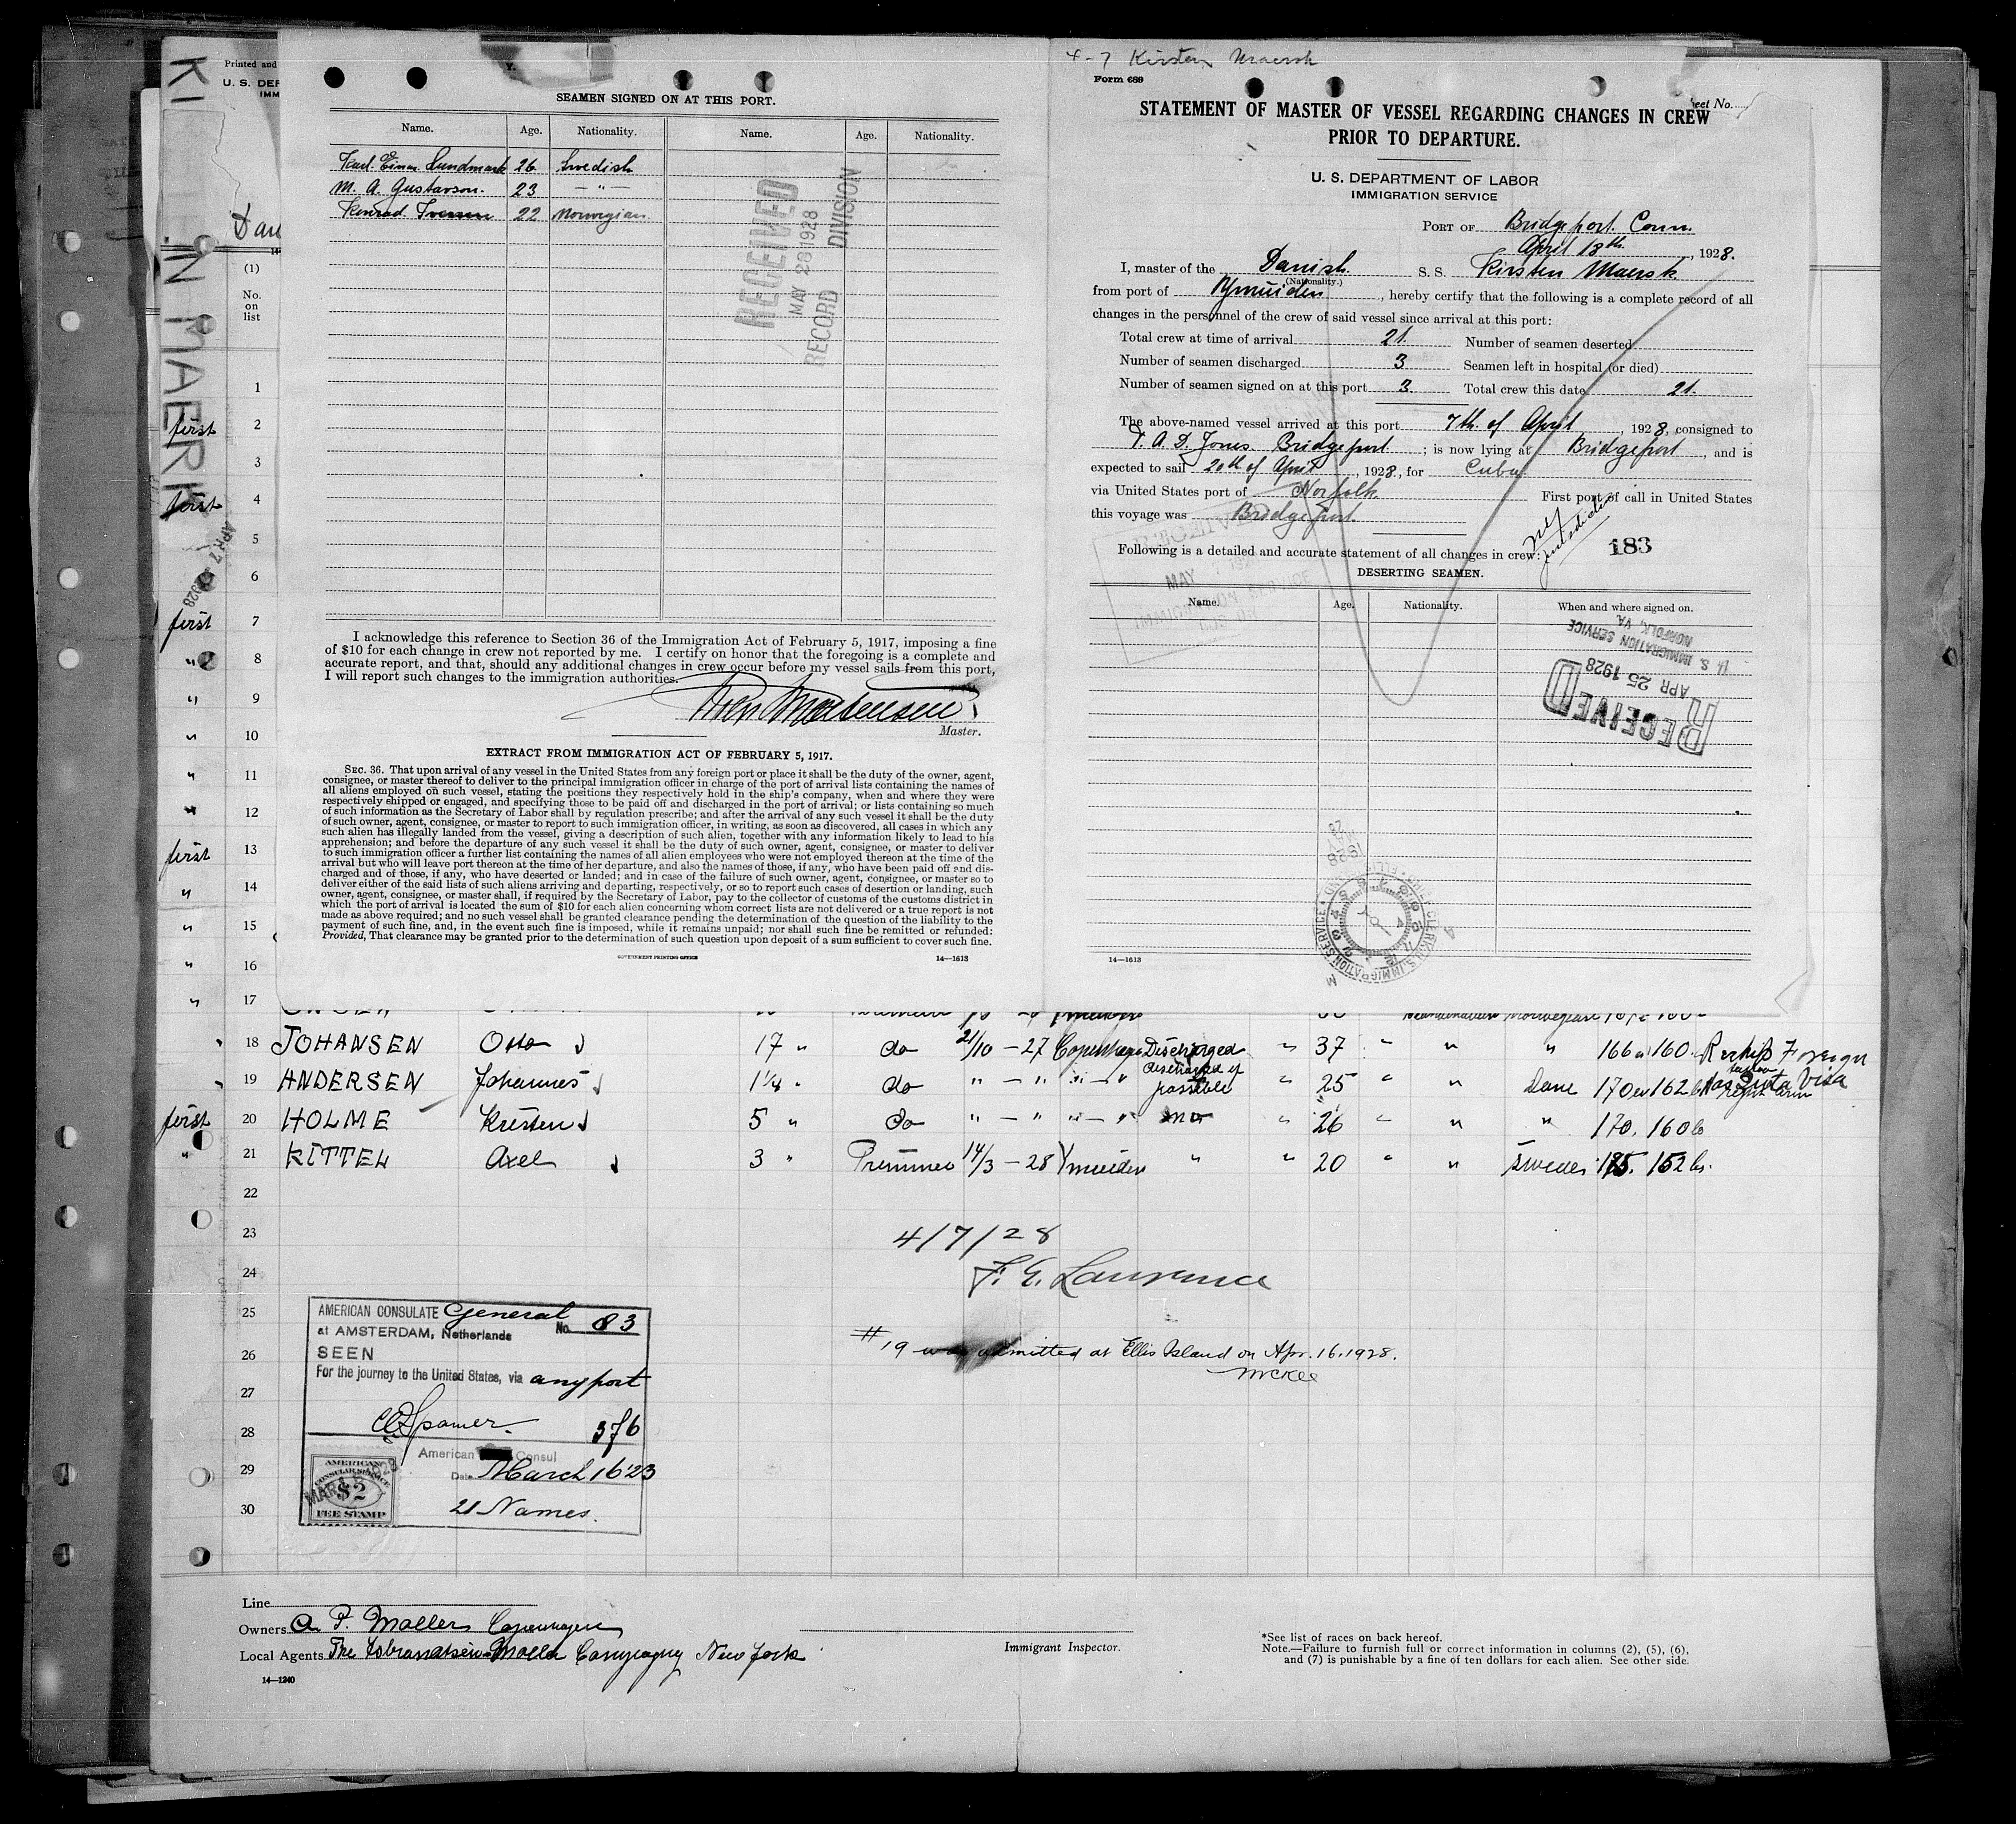 KI IN MAERK
Printed and
U. S. DEP
IMM
Dan
14
(1)
No.
on
list
SEAMEN SIGNED ON AT THIS PORT.
Name. Age. Nationality. Name. Age. Nationality.
Karl Einar Lundmark 26 Swedish
M. A. Gustavson. 23 — " —
Konrad Iversen 22 Norwegian.
RECEIVED
MAY 28 1928
RECORD DIVISION
I acknowledge this reference to Section 36 of the Immigration Act of February 5, 1917, imposing a fine
of $10 for each change in crew not reported by me. I certify on honor that the foregoing is a complete and
accurate report, and that, should any additional changes in crew occur before my vessel sails from this port,
I will report such changes to the immigration authorities.
Mortensen
Master.
EXTRACT FROM IMMIGRATION ACT OF FEBRUARY 5, 1917.
SEC. 36. That upon arrival of any vessel in the United States from any foreign port or place it shall be the duty of the owner, agent,
consignee, or master thereof to deliver to the principal immigration officer in charge of the port of arrival lists containing the names of
all aliens employed on such vessel, stating the positions they respectively hold in the ship's company, when and where they were
respectively shipped or engaged, and specifying those to be paid off and discharged in the port of arrival; or lists containing so much
of such information as the Secretary of Labor shall by regulation prescribe; and after the arrival of any such vessel it shall be the duty
of such owner, agent, consignee, or master to report to such immigration officer, in writing, as soon as discovered, all cases in which any
such alien has illegally landed from the vessel, giving a description of such alien, together with any information likely to lead to his
apprehension; and before the departure of any such vessel it shall be the duty of such owner, agent, consignee, or master to deliver
to such immigration officer a further list containing the names of all alien employees who were not employed thereon at the time of the
arrival but who will leave port thereon at the time of her departure, and also the names of those, if any, who have been paid off and dis-
charged and of those, if any, who have deserted or landed; and in case of the failure of such owner, agent, consignee, or master so to
deliver either of the said lists of such aliens arriving and departing, respectively, or so to report such cases of desertion or landing, such
owner, agent, consignee, or master shall, if required by the Secretary of Labor, pay to the collector of customs of the customs district in
which the port of arrival is located the sum of $10 for each alien concerning whom correct lists are not delivered or a true report is not
made as above required; and no such vessel shall be granted clearance pending the determination of the question of the liability to the
payment of such fine, and, in the event such fine is imposed, while it remains unpaid; nor shall such fine be remitted or refunded:
Provided, That clearance may be granted prior to the determination of such question upon deposit of a sum sufficient to cover such fine.
GOVERNMENT PRINTING OFFICE 14—1613
4-7 Kirsten Maersk
Form 689
eet No.
STATEMENT OF MASTER OF VESSEL REGARDING CHANGES IN CREW
PRIOR TO DEPARTURE.
U. S. DEPARTMENT OF LABOR
IMMIGRATION SERVICE
PORT OF Bridgeport. Conn.
April 18th, 1928.
I, master of the Danish. S. S. Kirsten Maersk
(Nationality.)
from port of Ymuiden, hereby certify that the following is a complete record of all
changes in the personnel of the crew of said vessel since arrival at this port:
Total crew at time of arrival 21. Number of seamen deserted
Number of seamen discharged 3 Seamen left in hospital (or died)
Number of seamen signed on at this port 3 Total crew this date 21.
The above-named vessel arrived at this port 7th. of April, 1928, consigned to
T. A. D. Jones Bridgeport; is now lying at Bridgeport, and is
expected to sail 20th of April, 1928, for Cuba
via United States port of Norfolk First port of call in United States
this voyage was Bridgeport.
Following is a detailed and accurate statement of all changes in crew: 183
DESERTING SEAMEN.
Name. Age. Nationality. When and where signed on.
U. S. IMMIGRATION SERVICE
NORFOLK, VA.
APR 25 1928
RECEIVED
14—1613
1
first 2
3
first 4
5
APR 7 1928
6
first 7
" 8
" 9
" 10
" 11
" 12
first 13
" 14
" 15
" 16
" 17
18 JOHANSEN Otto 17 " do 21/10 — 27 Copenhagen Discharged " 37 " " " 166 160 Reships Foreign
19 ANDERSEN Johannes 1 1/4 " do " — " " — " discharged if possible " 25 " " Dane 170 162 Visa
first 20 HOLME Kresten 5 " do " — " " — " no " 26 " " " 170. 160 lb
" 21 KITTEL Axel 3 " Trimmer 14/3 — 28 Ymuiden " " 20 " " Swedes 175. 152 lbs.
22
23 4/7/28
24 F. E. Laurence
25
26 #19 was admitted at Ellis Island on Apr. 16, 1928.
McKee
27
28
29
30
AMERICAN CONSULATE General
at AMSTERDAM, Netherlands No. 83
SEEN
For the journey to the United States, via any port
376
American Consul
Date March 16 '28
21 Names.
AMERICAN
CONSULAR SERVICE
$2
FEE STAMP
Line
Owners A. P. Moller Copenhagen
Local Agents The Isbrandtsen-Moller Company New York
14—1240
Immigrant Inspector.
*See list of races on back hereof.
Note.—Failure to furnish full or correct information in columns (2), (5), (6),
and (7) is punishable by a fine of ten dollars for each alien. See other side.